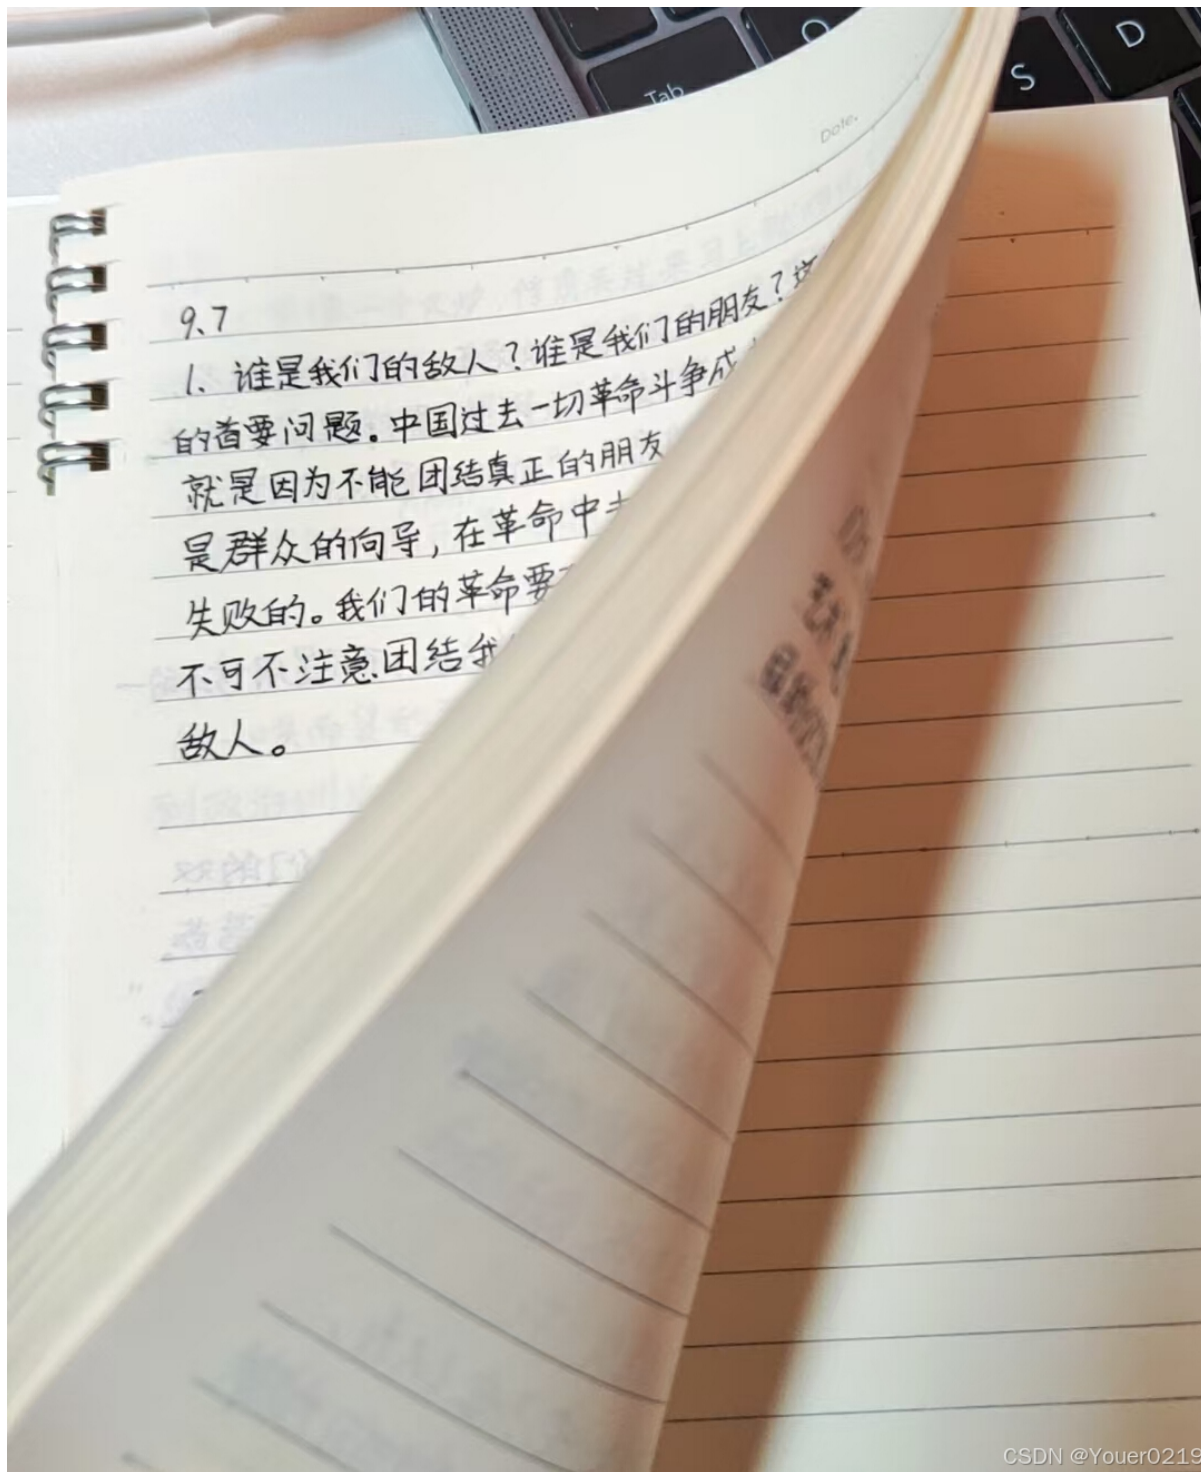 Tab
Q
S
D
Date.
9.7
1. 谁是我们的敌人？谁是我们的朋友？这
的首要问题。中国过去一切革命斗争成
就是因为不能团结真正的朋友
是群众的向导，在革命中
失败的。我们的革命要
不可不注意团结我
敌人。
CSDN @Youer0219